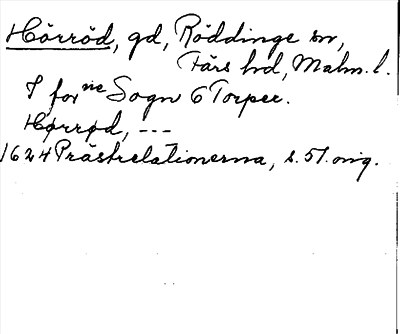 Hörröd, gd, Röddinge sn,
Färs hd, Malm. l.
J for ne Sogn 6 Torper.
Hørrød, ---
1624 Prästrelationerna, s. 57. orig.